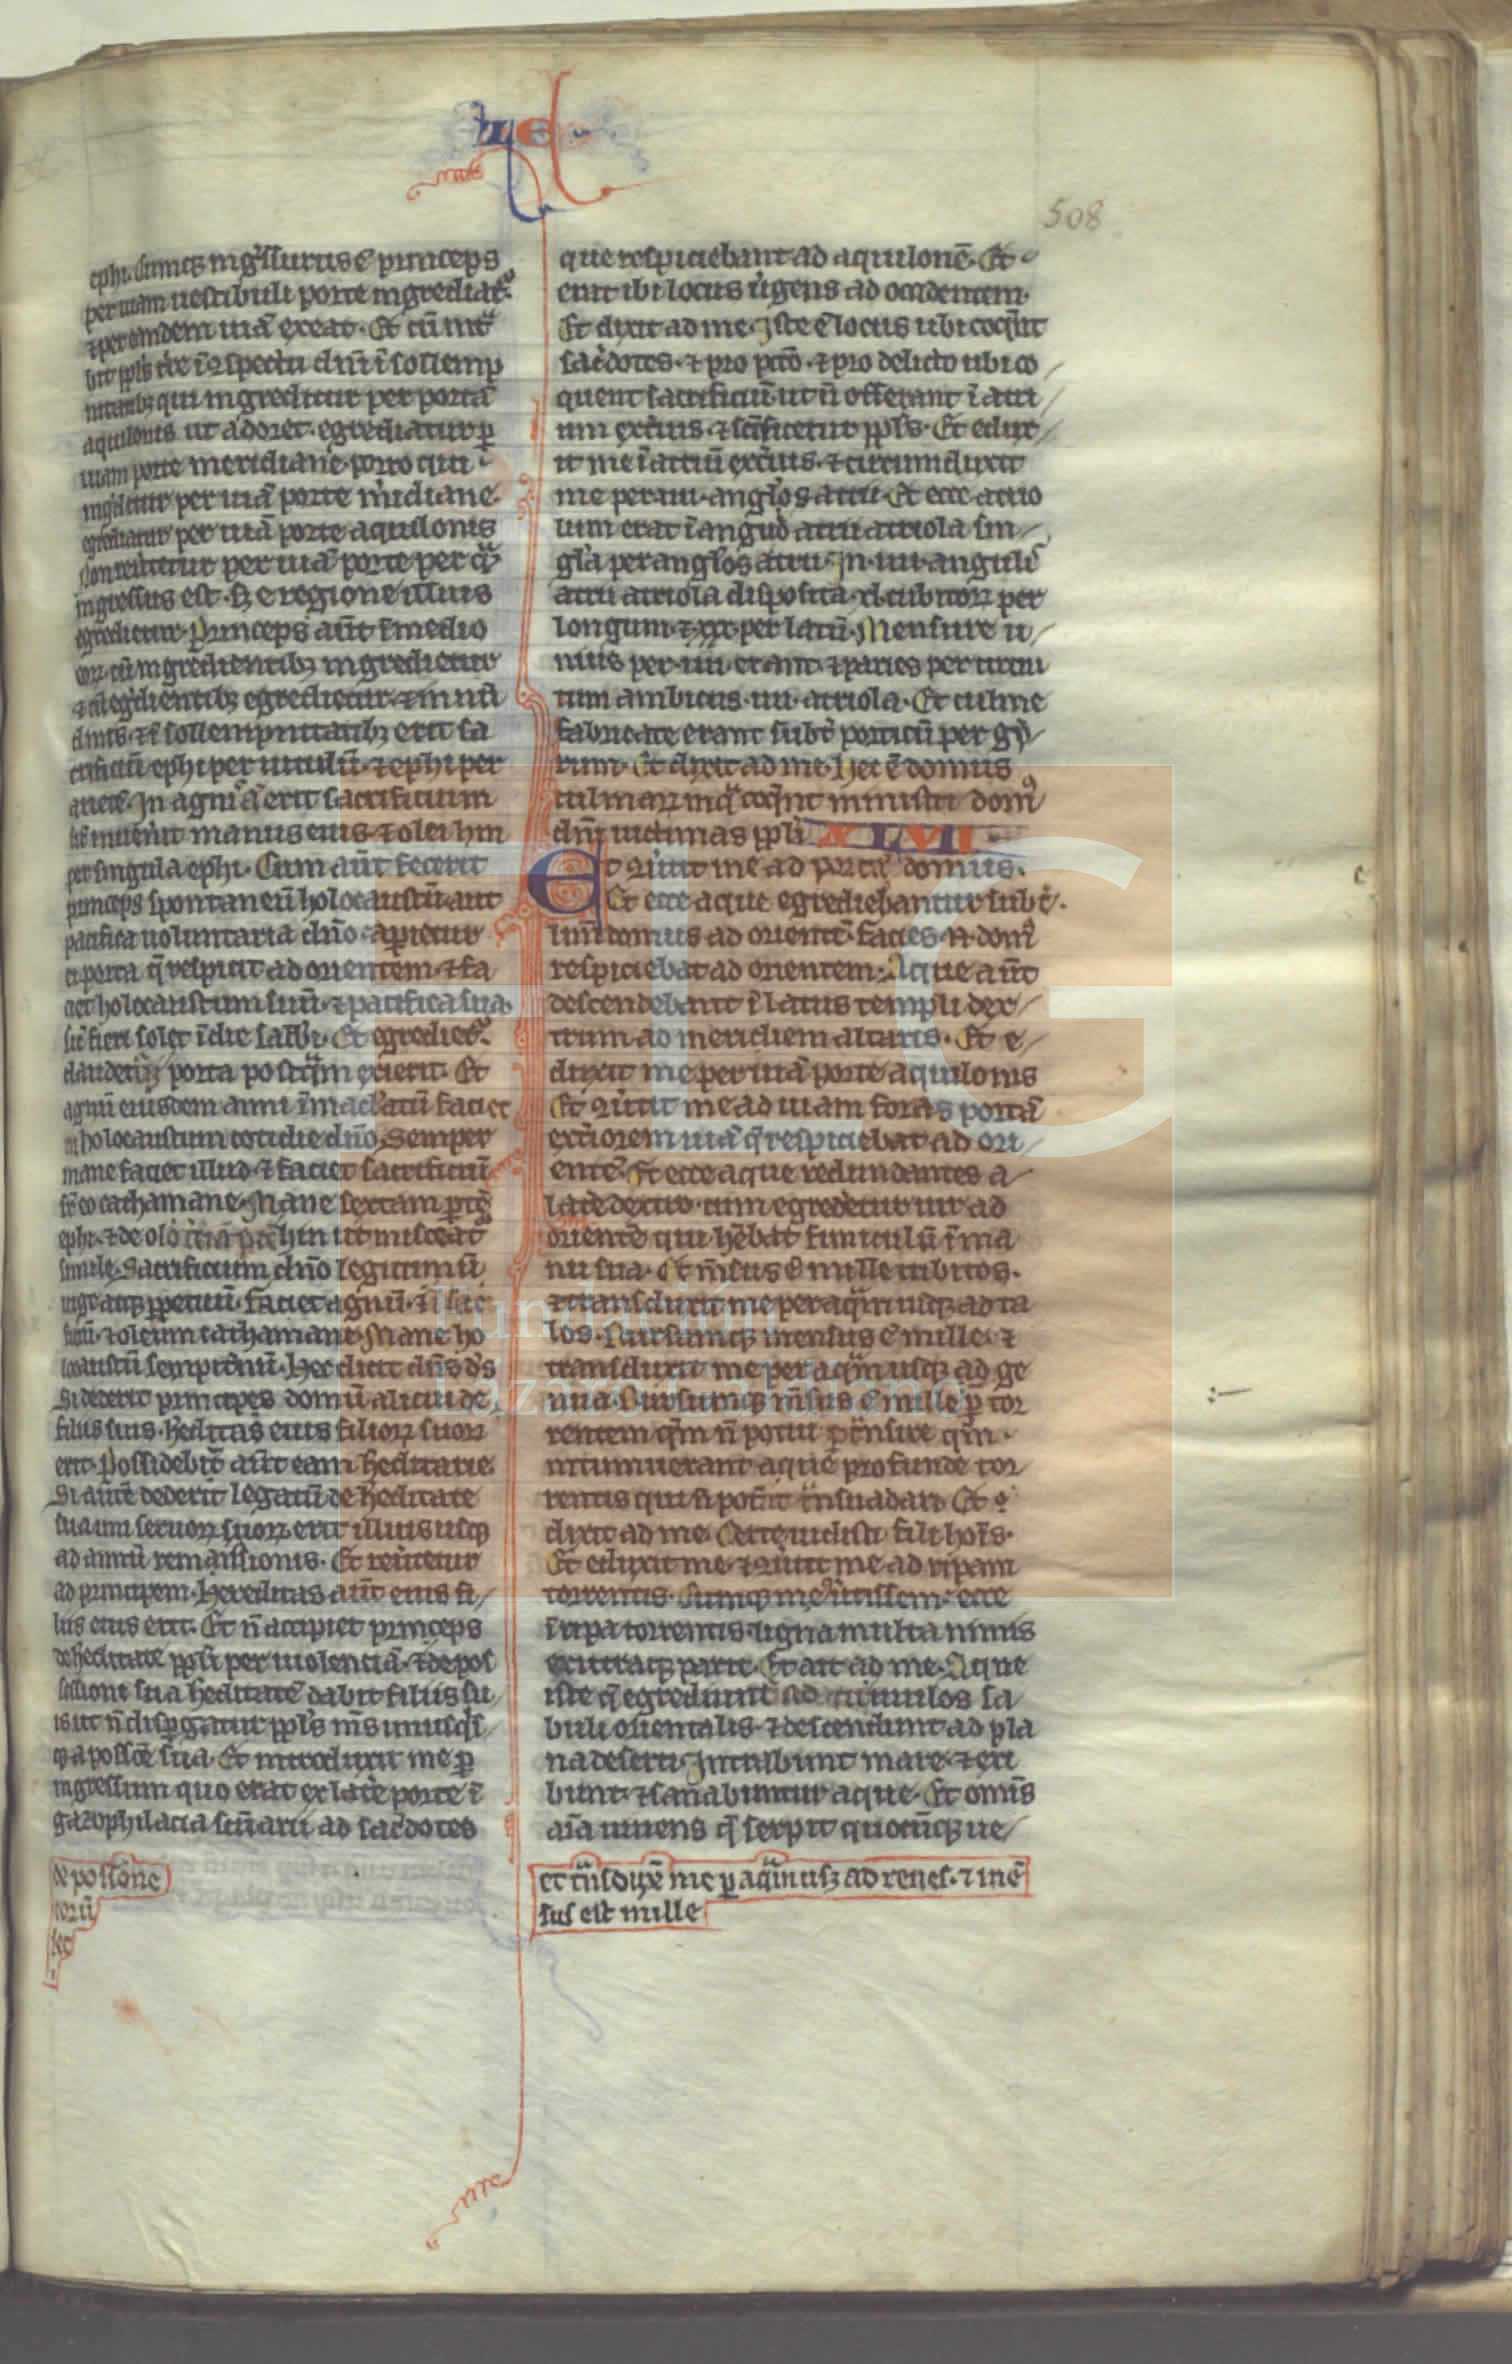 IEL
508
ephi. Cumq; ingͬssurus ē princeps
per uiam uestibuli porte ingrediatᷣ.
⁊ per eandem uiā exeat. Et cū intͣ
bit ppl̄s tr̄e ī ꝯspectu dn̄i ī sollemp
nitatibꝫ qui ingreditur per portā
aquilonis ut adoret. egrediatur ꝑ
uiam porte meridiane. porro qui
ingͬditur per uiā porte mͥdiane.
egrediatur per uiā porte aquilonis
Non reuͥtitur per uiā porte per qͣ̄
ingressus est. sꝫ e regione illius
egredietur. Princeps aūt ī medio
eoꝝ. cū ingredientibꝫ ingredietur
⁊ cū egͬdientibꝫ egredietur. ⁊ in nū
dinis. ⁊ ī sollempnitatibꝫ erit sa
crificiū ephi per uitulū. ⁊ ephi per
arietē. In agnis erit sacrificium
sic̄ inuen̄it manus eius. ⁊ olei hin
per singula ephi. Cum aūt fecerit
princeps spontaneū holocaustū aut
pacifica uoluntaria dn̄o. aperietur
ei porta q̄ respicit ad orientem. ⁊ fa
ciet holocaustum suū. ⁊ pacifica sua
sic̄ fieri solet ī die sabb̄i. Et egredietᷣ.
claudeturq; porta postqͣm exierit. Et
agnū eiusdem anni īmaclatū faciet
in holocaustum cotidie dn̄o. Semper
mane faciet illud. ⁊ faciet sacrificiū
sr̄ eo cathamane. Mane sextam partē
ephi. ⁊ de oleo tͨiā ptē hin ut misceatᷣ
simile. Sacrificium dn̄o legitimū
iuge atq; ꝑpetuū. faciet agnū. ⁊ sac̄
ficiū. ⁊ oleum cathamane. Mane ho
locaustū sempitͥnū. Hec dicit dn̄s d̄s
Si dederit princeps domū alicui de
filiis suis. h̄editas eius filioꝝ suoꝝ
erit. Possidebūt aūt eam h̄editarie.
Si autē dederit legatū de h̄editate
sua uni seruoꝝ suoꝝ. erit illius usq;
ad annū remissionis. Et reuͥtetur
ad principem. Hereditas aūt eius fi/
liis eius erit. Et n̄ accipiet princeps
de h̄editate ppl̄i per uiolenciā. ⁊ de pos
sessione sua h̄editatē dabit filiis su/
is ut n̄ dispergatur ppl̄s m̄s unusqͥs/
q; a possōe sua. Et introduxit me ꝑ
ingressum quo erat ex latͥe porte ī
gazophilacia sc̄uarii ad sac̄dotes
de possōne
eorū
que respiciebant ad aquilonē. Et
erat ibi locus uͥgens ad occidentem.
Et dixit ad me. Iste ē locus ubi coqͣnt
sac̄dotes. ⁊ pro pctō. ⁊ pro delicto ubi co/
quent sacrificiū. ut n̄ offerant ī atri/
um extͥius. ⁊ sc̄ificetur ppl̄s. Et edux/
it me ī atriū extͥius. ⁊ circumduxit
me per iiii. anglōs atrii. Et ecce atrio
lum erat ī angulo atrii. atriola sin/
gla per anglōs atrii. In iiii. angulis
atrii atriola disposita. xl. cubitoꝝ per
longum. ⁊ xxx. per latū. Mensure u/
nius per iiii. erant. ⁊ paries per circui
tum ambiens. iiii. atriola. Et culine
fabricate erant subtͥ porticū per gy/
rum. Et dixit ad me. Hec ē domus
culinaꝝ inqͣ coqͣnt ministri domꝰ
dn̄i uictimas ppl̄i. XLVII
Et ꝯuͥtit me ad portā domus.
Et ecce aque egrediebantur subtͥ.
limē domus ad orientē. facies .n. domꝰ
respiciebat ad orientem. Aque aūt
descendebant ī latus templi dex/
trum ad meridiem altaris. Et e/
duxit me per uiā porte aquilonis
Et ꝯuͥtit me ad uiam foras portā
extͥiorem uiā q̄ respiciebat ad ori/
entē. Et ecce aque redundantes a/
latͥe dextro. cum egredetur uir ad
orientē qui h̄ebat funiculū ī ma
nu sua. Et m̄sus ē mille cubitos.
⁊ transduxit me per aqͣm usq; ad ta
los. Rursumq; mensus ē mille. ⁊
transduxit me per aqͣm usq; ad ge
nua. Rursumq; m̄sus ē mille ꝑ tor
rentem qͣm n̄ potui ꝑtͣnsire qm̄.
intumuerant aque profunde tor/
rentis qui n̄ potͥit tͣnsuadari. Et
dixit ad me. Certe uidisti fili hoīs.
Et eduxit me. ⁊ ꝯuͥtit me ad ripam
torrentis. Cumq; me ꝯuͥtissem. ecce
ī ripa torrentis. ligna multa nimis
ex utraq; parte. Et ait ad me. Aque
iste q̄ egrediunt᷑ ad tumulos sa/
buli orientalis. ⁊ descendunt ad pla
na deserti. Intrabunt mare. ⁊ exi
bunt. ⁊ sanabuntur aque. Et omīs
aīa uiuens q̄ serpit quocūq; ue/
et tͣnsduxē me ꝑ aqͣm usꝫ ad renes. ⁊ mē
sus est mille
FLG
Fundación
Lázaro Galdiano